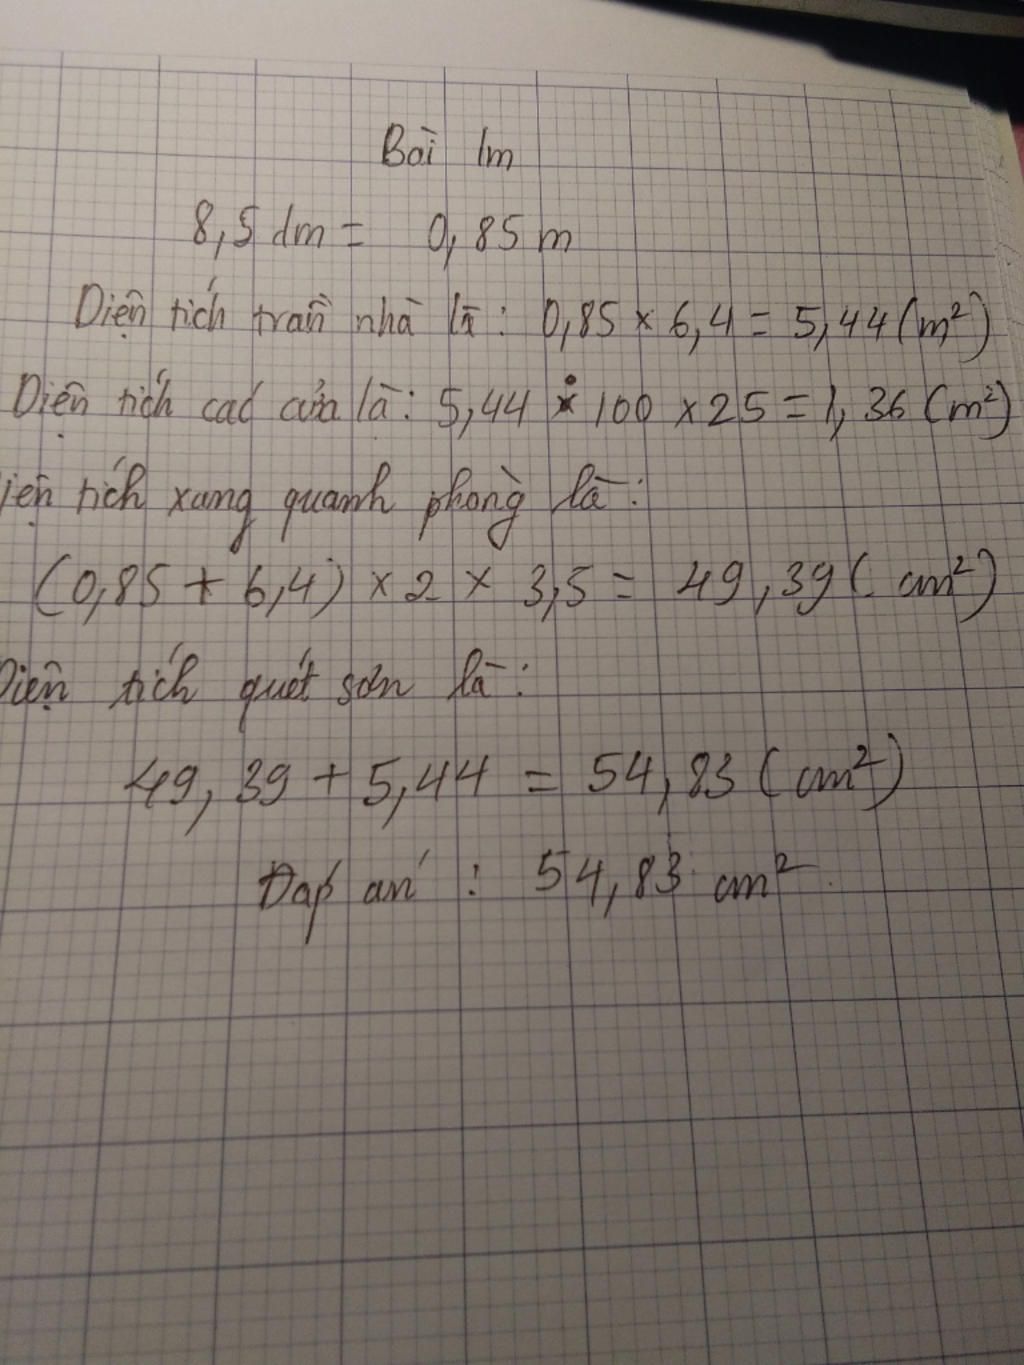 Bài lm
8,5 dm = 0,85 m
Diện tích trần nhà là: 0,85 × 6,4 = 5,44 (m²)
Diện tích các cửa là: 5,44 : 100 × 25 = 1,36 (m²)
iện tích xung quanh phòng là:
(0,85 + 6,4) × 2 × 3,5 = 49,39 (cm²)
Diện tích quét sơn là:
49,39 + 5,44 = 54,83 (cm²)
Đáp án : 54,83 cm²